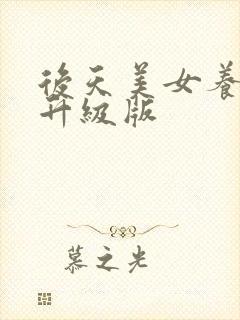 後天美女養
升級版
慕之光